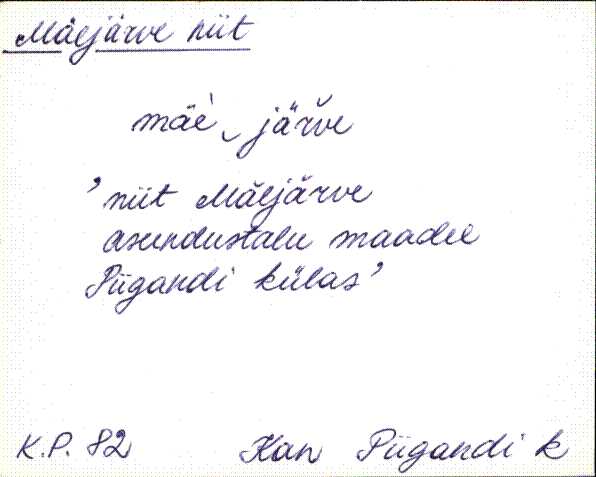 Mäejärve niit
mäè ͜ järve
'niit Mäejärve
asundustalu maadel
Piigandi külas'
K.P. 82 Kan Piigandi k